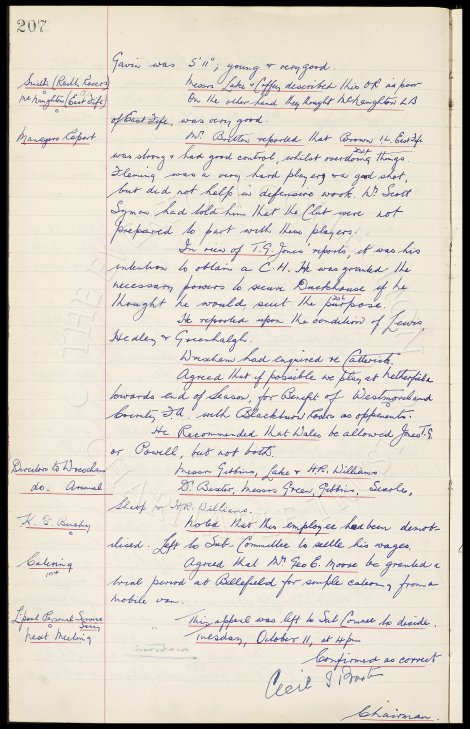 207
Gavin was 5'11", young & very good.
Smith (Raith Rovers)
Messrs Lake & Coffey described this OR as poor
McNaughton (East Fife)
On the other hand they thought McNaughton LB
of East Fife, was very good.
Managers Report
Mr. Buxton reported that Brown IL East Fife
was strong & had good control, whilst overdoing things.
Fleming was a very hard player & a good shot,
but did not help in defensive work. Mr Scott
Symon, had told him that the Club were not
prepared to part with these players.
In view of T.G. Jones' reports, it was his
intention to obtain a C.H. He was granted the
necessary powers to secure Duckhouse if he
thought he would suit the purpose.
He reported upon the condition of Lewis,
Hedley & Greenhalgh.
Wrexham had enquired re Catterick
Agreed that if possible we play at Netherfield
towards end of Season, for Benefit of Westmoreland
County F.A. with Blackburn Rovers as opponents.
He Recommended that Wales be allowed Jones T.G.
or Powell, but not both.
Directors to Wrexham
Messrs Gibbins, Lake & H.R. Williams
do. Arsenal
Dr. Baxter, Messrs Green, Gibbins, Searle,
Sharp & H.R. Williams.
Noted that this employee had been demob-
ilised. Left to Sub-Committee to settle his wages.
Catering
Agreed that Mr Geo E. Moore be granted a
trial period at Bellefield for simple catering from a
mobile van.
L'pool Personal Service
Socy
This appeal was left to Sub Comee to decide.
Next Meeting
Tuesday, October 11, at 4pm
Confirmed as correct
Chairman.